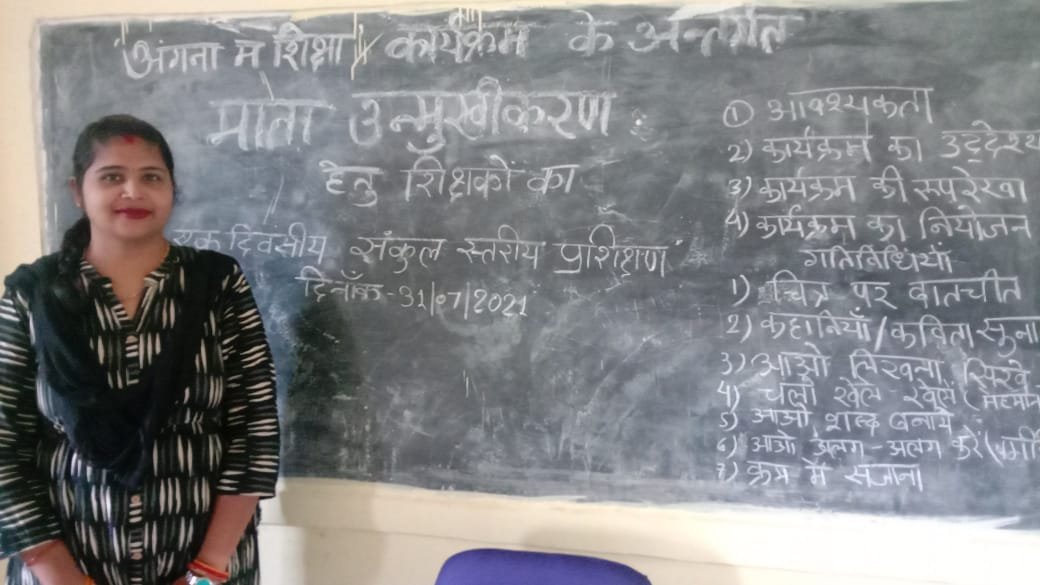 "अंगना म शिक्षा" कार्यक्रम के अन्तर्गत
माता उन्मुखीकरण
हेतु शिक्षकों का
एक दिवसीय संकुल स्तरीय प्रशिक्षण"
दिनाँक - 31/07/2021
① आवश्यकता
2) कार्यक्रम का उद्देश्य
3) कार्यक्रम की रूपरेखा
4) कार्यक्रम का नियोजन
गतिविधियाँ
1) चित्र पर बातचीत
2) कहानियाँ/कविता सुना
3) आओ लिखना सिखे
4) चलो खेल खेलें
5) आओ शब्द बनाये
6) आओ अलग-अलग करें
7) क्रम में सजाना